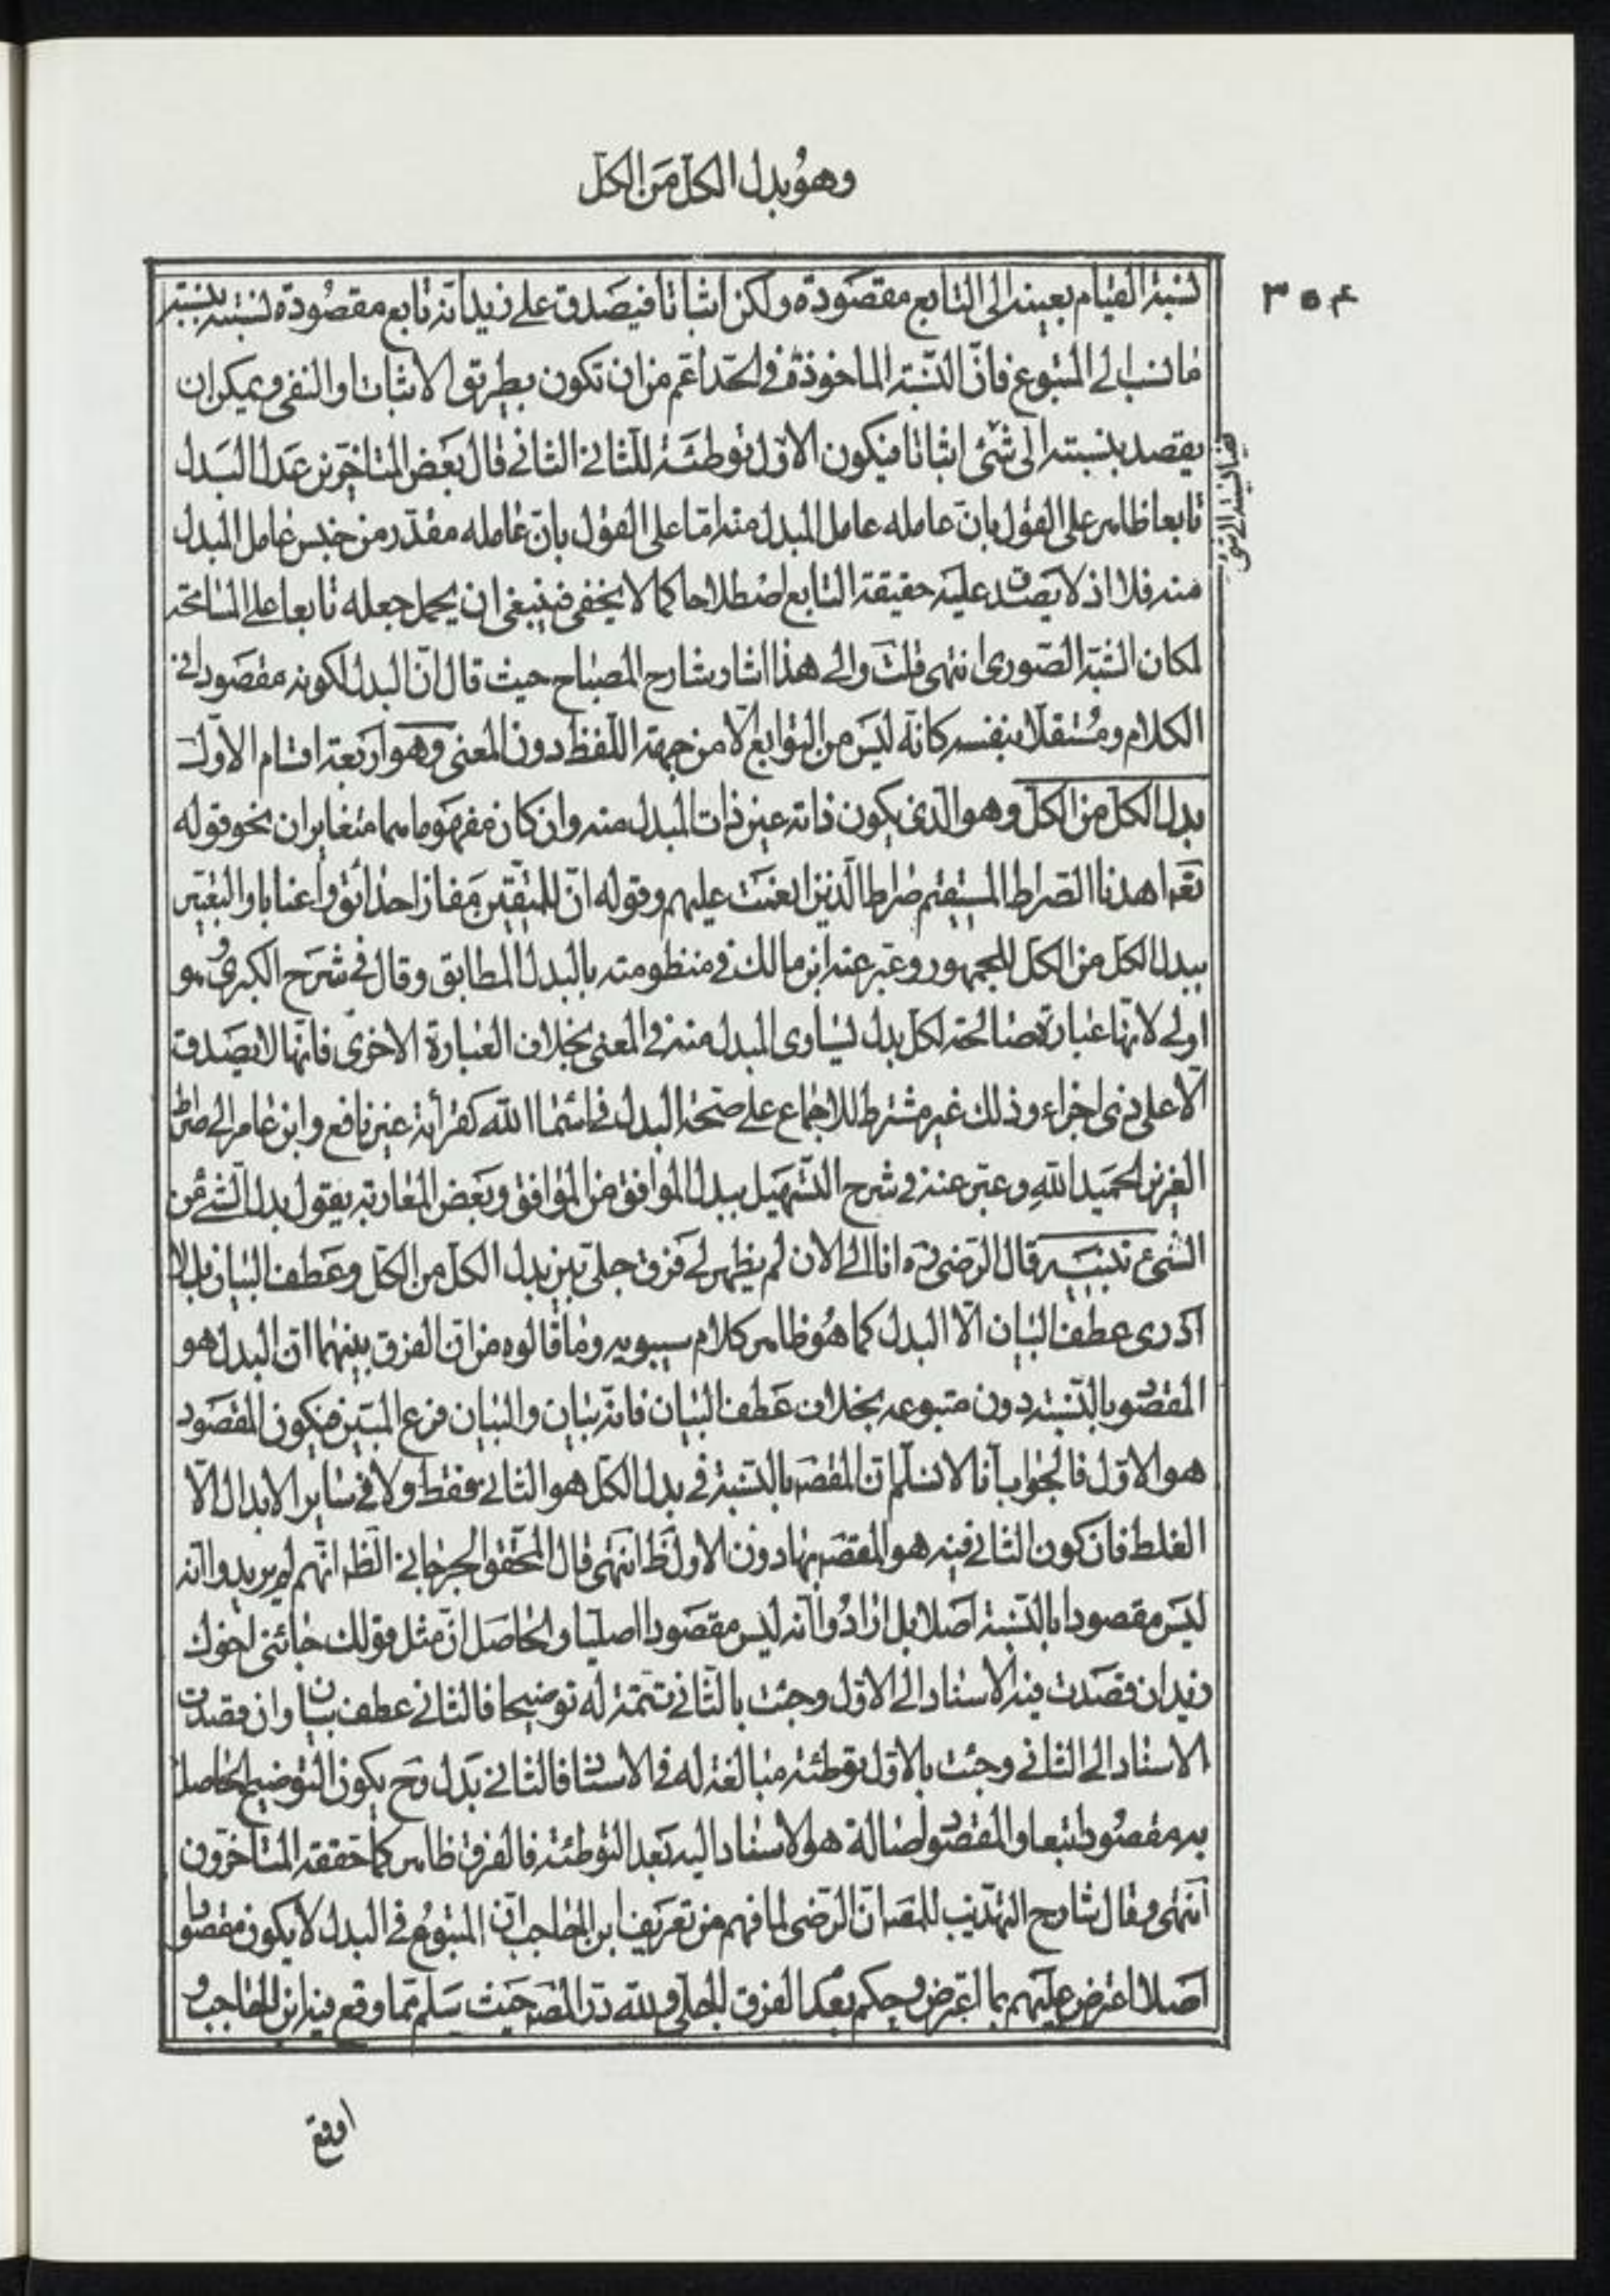 وهو بدل الكل من الكل
۳۵۴
نسبة القيام بعينه الى التابع مقصودة ولكن اثباتا فيصدق على زيد انه تابع مقصودة نسبته بنسبة
ما نسب الى المتبوع فان النسبة الماخوذة في الحد اعم من ان تكون بطريق الاثبات او النفي ويمكن ان
يقصد بنسبته الى شئ اثباتا فيكون الاول توطئة للثاني الثاني قال بعض المتاخرين عد البدل
تابعا ظاهر على القول بان عامله عامل المبدل منه اما على القول بان عامله مقدر من جنس عامل المبدل
منه فلا اذ لا يصدق عليه حقيقة التابع اصطلاحا كما لا يخفى فينبغي ان يحمل جعله تابعا على المسامحة
لمكان الشبه الصوري انتهى قلت والى هذا اشار شارح المصباح حيث قال ان البدل لكونه مقصودا في
الكلام ومستقلا بنفسه كانه ليس من التوابع الا من جهة اللفظ دون المعنى وهو اربعة اقسام الاول
بدل الكل من الكل وهو الذي يكون ذاته عين ذات المبدل منه وان كان مفهوماهما متغايران نحو قوله
تعه اهدنا الصراط المستقيم صراط الذين انعمت عليهم وقوله ان للمتقين مفازا حدائق واعنابا والتعبير
ببدل الكل من الكل للجمهور وعبر عنه ابن مالك في منظومته بالبدل المطابق وقال في شرح الكبرى هو
اولى لانها عبارة صالحة لكل بدل يساوى المبدل منه في المعنى بخلاف العبارة الاخرى فانها لا يصدق
الا على ذي اجزاء وذلك غير مشترط للاجماع على صحة البدل في اسماء الله كقرأة غير نافع وابن عامر الى صراط
العزيز الحميد الله وعبر عنه في شرح التسهيل ببدل الموافق من الموافق وبعض المغاربة يقول بدل الشئ من
الشئ تنبيه قال الرضى ره انا الى الان لم يظهر لي فرق جلي بين بدل الكل من الكل وعطف البيان بل لا
ادرى عطف البيان الا البدل كما هو ظاهر كلام سيبويه وما قالوه من ان الفرق بينهما ان البدل هو
المقصود بالنسبة دون متبوعه بخلاف عطف البيان فانه بيان والبيان فرع المبين فيكون المقصود
هو الاول فالجواب انا لا نسلم ان المقصه بالنسبة في بدل الكل هو الثاني فقط ولا في ساير الابدال الا
الغلط فان كون الثاني فيه هو المقصه بها دون الاول ظ انتهى قال المحقق الجرجاني الظه انهم لم يريدوا انه
ليس مقصودا بالنسبة اصلا بل ارادوا انه ليس مقصودا اصليا والحاصل ان مثل قولك جائنى اخوك
زيد ان قصدت فيه الاسناد الى الاول وجئت بالثاني تتمة له توضيحا فالثاني عطف بيان وان قصدت
الاسناد الى الثاني وجئت بالاول توطئة مبالغة له في الاسناد فالثاني بدل وح يكون التوضيح الحاصل
به مقصودا تبعا والمقصود اصالة هو الاسناد اليه بعد التوطئة فالفرق ظاهر كما حققه المتاخرون
انتهى وقال شارح التهذيب للمقه ان الرضى لما فهم من تعريف ابن الحاجب ان المتبوع في البدل لا يكون مقصودا
اصلا اعترض عليهم بما اعترض وحكم بعدم الفرق الجلي ولله در المصه حيث سلم مما وقع فيه ابن الحاجب و
اوقع